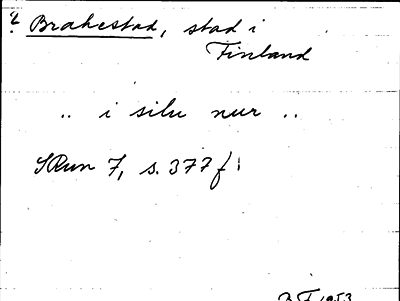 ? Brahestad, stad i
Finland
.. i silu nur ..
SRun 7, s. 377 f.
1953